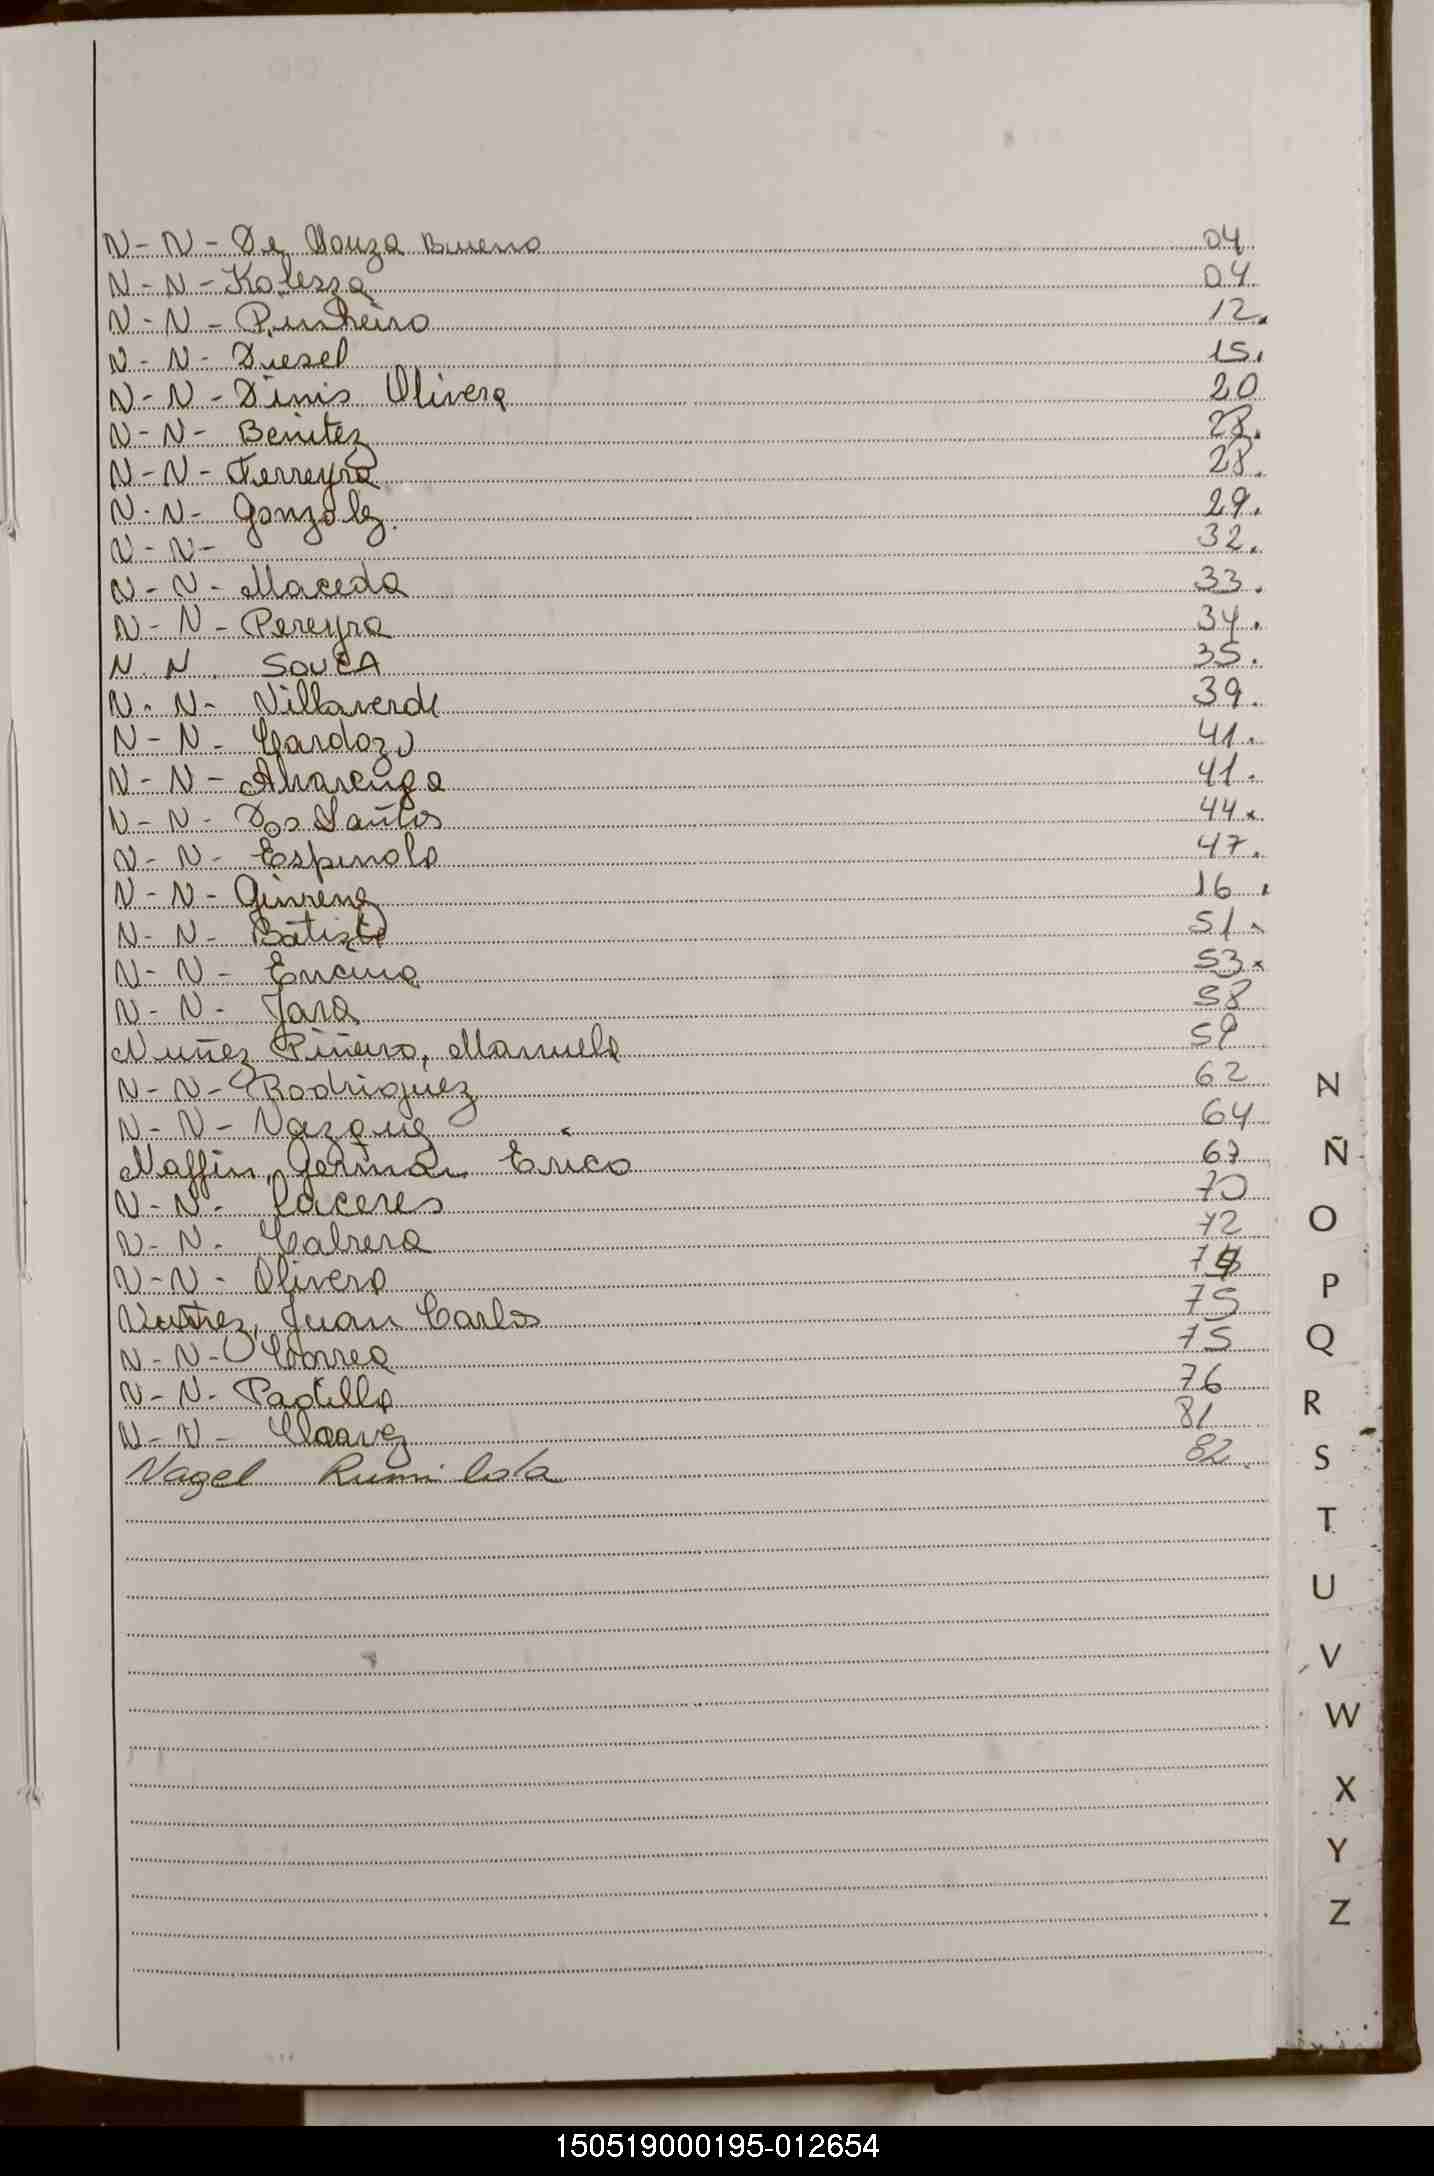 N-N- De Souza Bueno 04
N-N- Kolessa 04
N-N- Pinheiro 12.
N-N- Diesel 15.
N-N- Dinis Olivera 20
N-N- Benitez 28.
N-N- Ferreyra 28.
N-N- Gonzalez. 29.
N-N- 32.
N-N- Maceda 33.
N-N- Pereyra 34.
N.N. SOUZA 35.
N.N- Villaverde 39.
N-N- Cardozo 41.
N-N- Alvarenga 41.
N-N- Dos Santos 44.
N-N- Espinola 47.
N-N- Gimenez 16.
N-N- Batista 51.
N-N- Encina 53.
N-N- Jara 58
Nuñez Piñeiro, Manuela 59
N-N- Rodriguez 62
N-N- Vazquez 64
Naffin, German Erico 67
N-N- Caceres 70
N-N- Cabrera 72
N-N- Olivera 74
Nuñez, Juan Carlos 75
N-N- Correa 75
N-N- Padilla 76
N-N- 81
Nagel Rumilda 82.
N
Ñ
O
P
Q
R
S
T
U
V
W
X
Y
Z
150519000195-012654